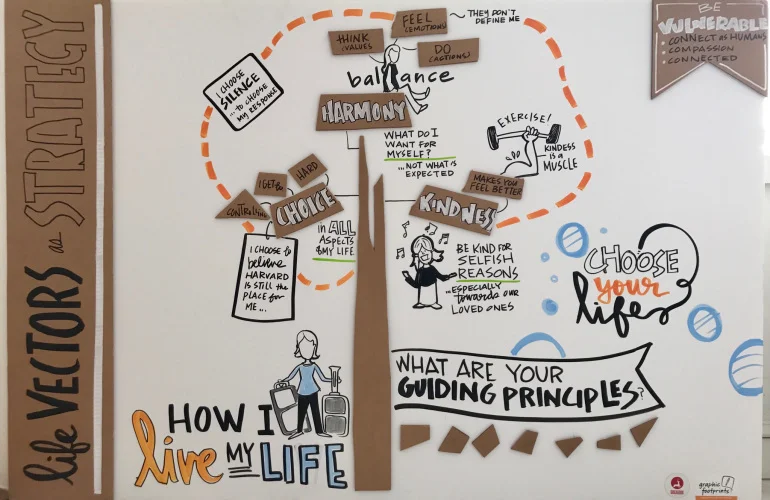 life VECTORS as STRATEGY
BE
VULNERABLE
• CONNECT AS HUMANS
• COMPASSION
• CONNECTED
FEEL
(EMOTIONS)
THEY DON'T
DEFINE ME
THINK
(VALUES)
DO
(ACTIONS)
balance
HARMONY
I CHOOSE
SILENCE
... to CHOOSE
MY RESPONSE
WHAT DO I
WANT FOR
MYSELF?
... NOT WHAT IS
EXPECTED
EXERCISE!
KINDESS
IS A
MUSCLE
MAKES YOU
FEEL BETTER
KINDNESS
HARD
I GET to
CONTROLLING
CHOICE
in ALL
ASPECTS
of MY LIFE
I CHOOSE to
believe
HARVARD
IS STILL the
PLACE for
ME...
BE KIND FOR
SELFISH
REASONS
...ESPECIALLY
towards our
LOVED ONES
CHOOSE
your
life
WHAT ARE YOUR
GUIDING PRINCIPLES?
HOW I
live MY LIFE
graphic
footprints